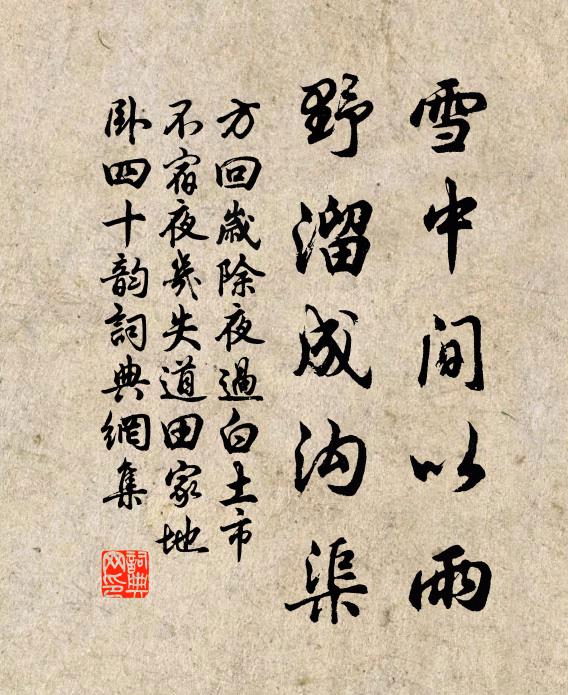 雪中間以雨
野溜成沟渠
方回歲除夜過白土市
不宿夜幾失道田家地
卧四十韵詞典網集
詞典
网印